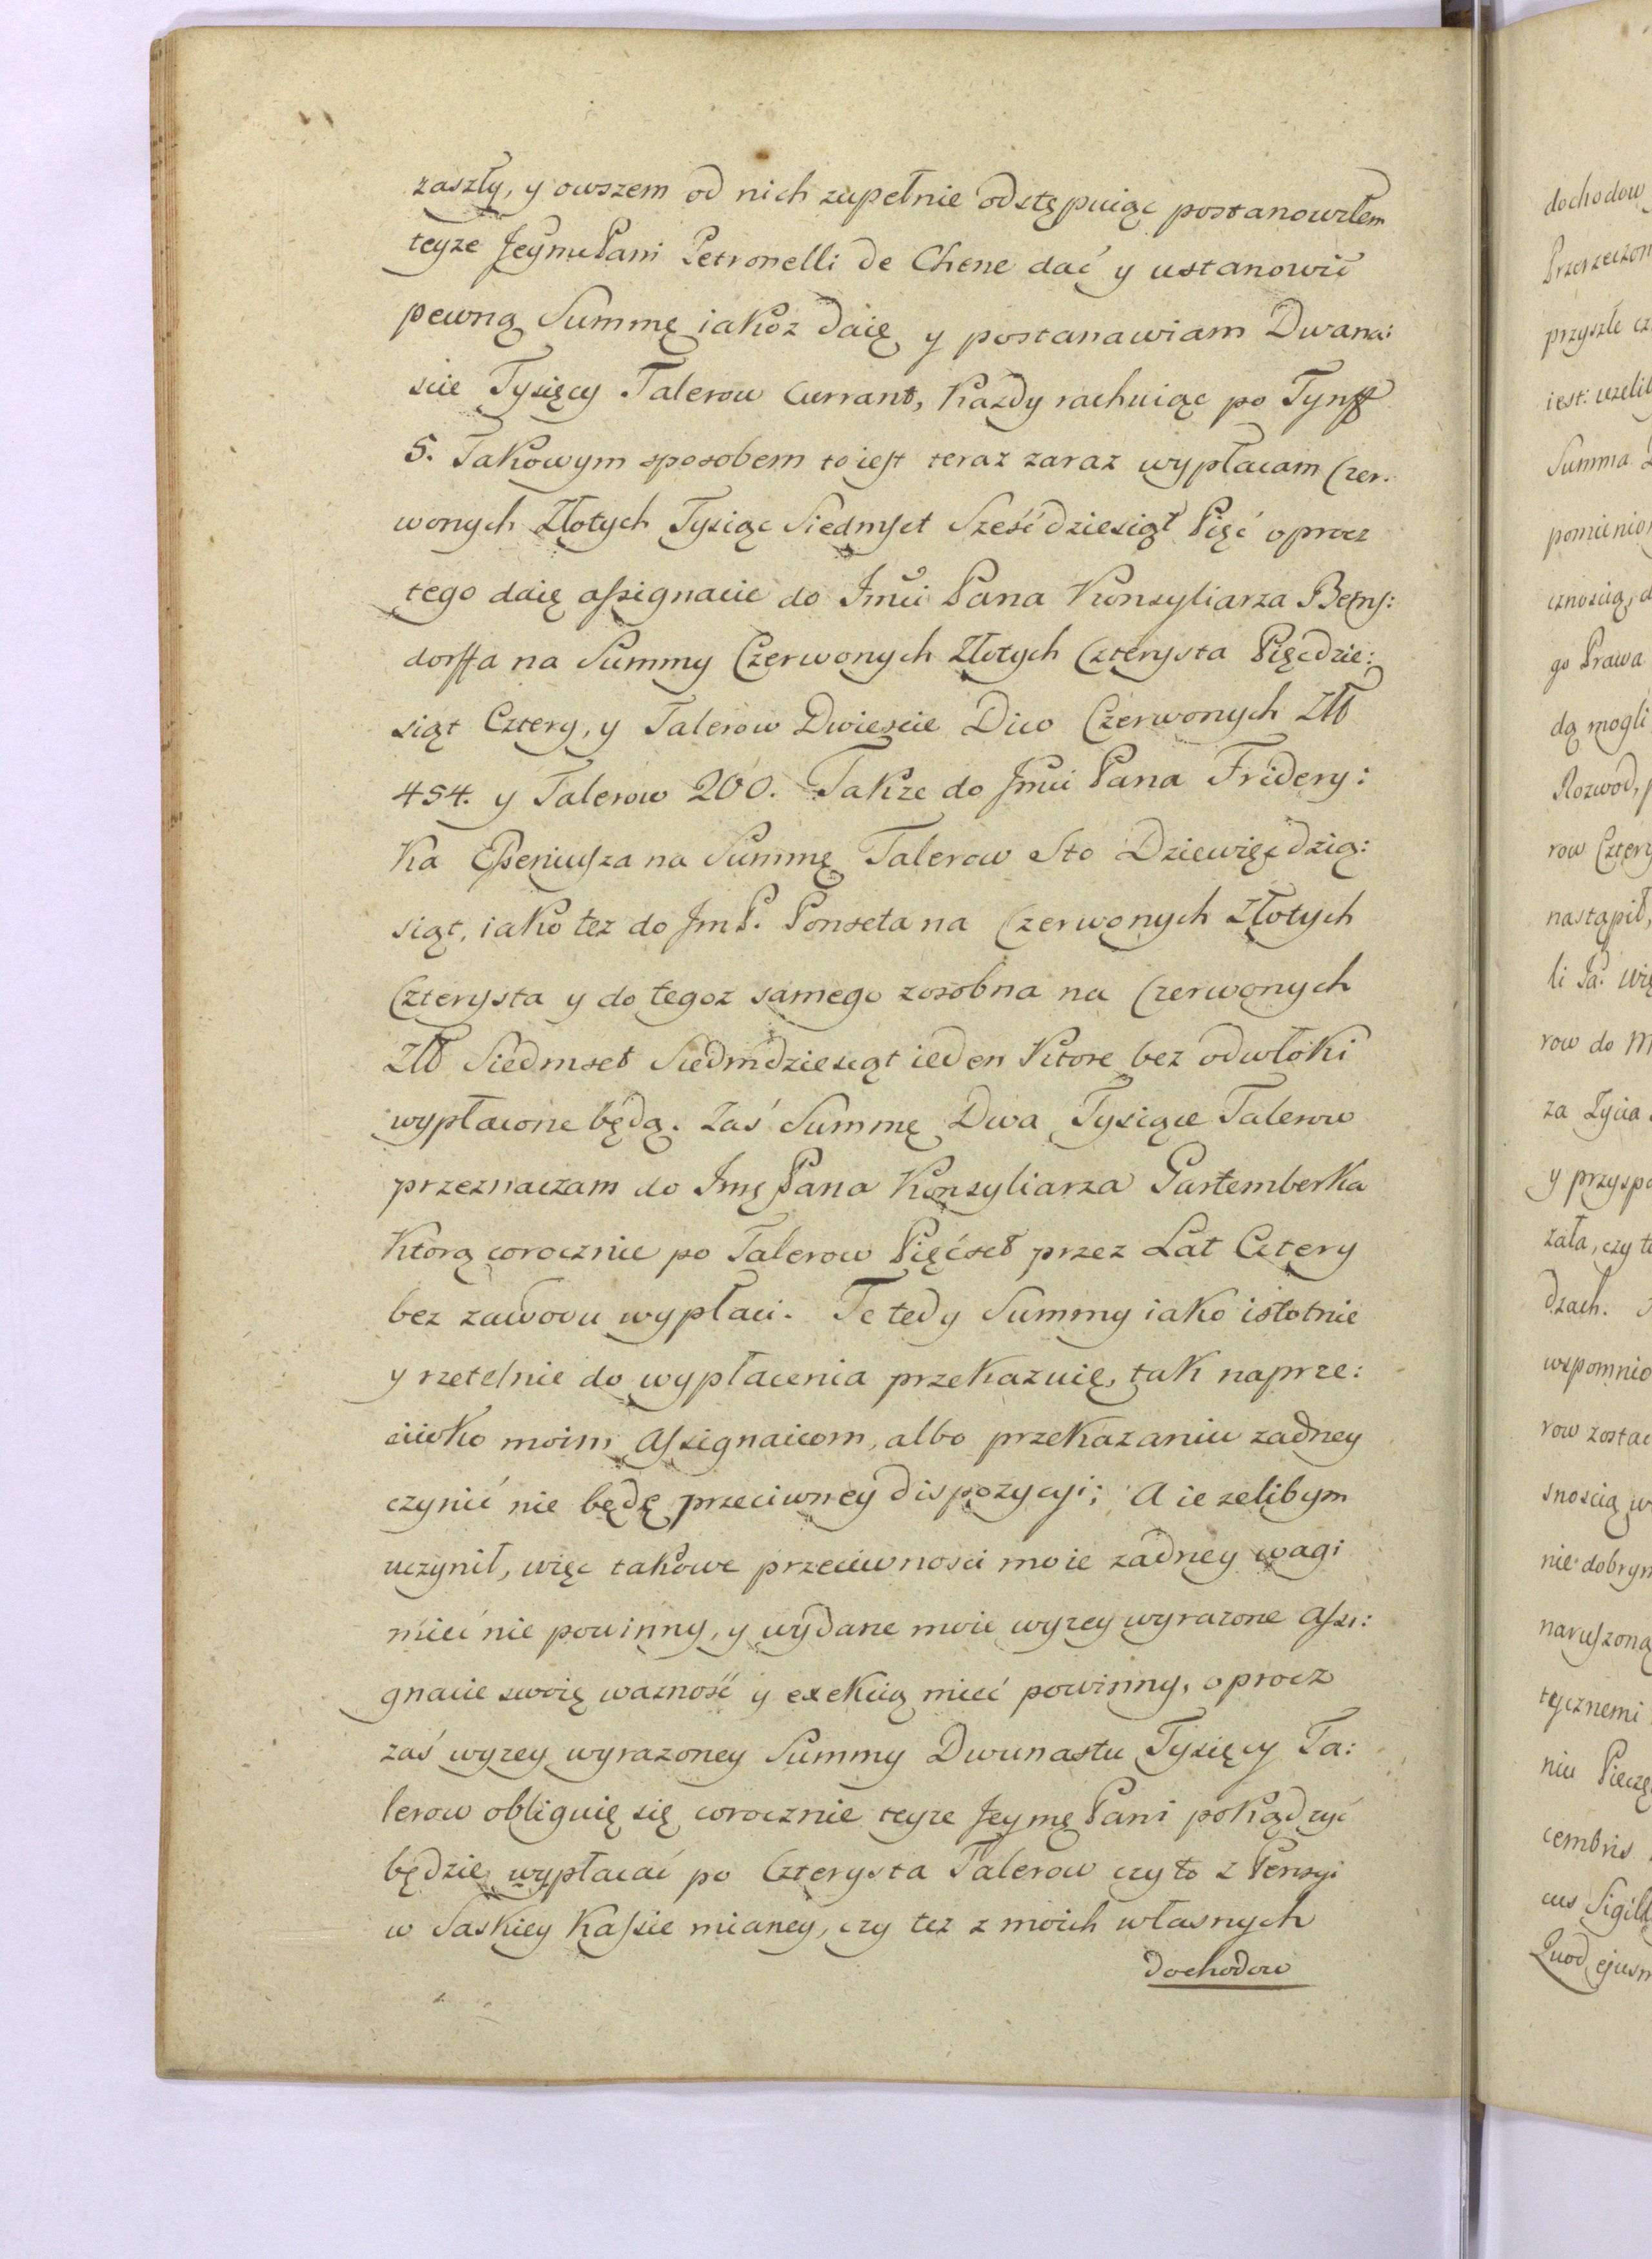 zaszły, y owszem od nich zupełnie odstępuiąc postanowiłem
teyze Jeymu Pani Petronelli de Chene dać y ustanowić
pewną Summę iakoz daię y postanawiam Dwana:
scie Tysięcy Talerow Currant, Kazdy rachuiąc po Tynff
5. Takowym sposobem to iest teraz zaraz wypłacam Czer.
wonych Złotych Tysiąc Siedmset Sześćdziesiąt Pięć oprocz
tego daię assignacie do Jmci Pana Konsyliarza Betns:
dorffa na Summy Czerwonych Złotych Czterysta Pięcdzie:
siąt Cztery, y Talerow Dwiescie Dico Czerwonych Złł
454. y Talerow 200. Takze do Jmci Pana Fridery:
Ka Esseniusza na Summę Talerow Sto Dziewięcdzią:
siąt, iako tez do Jm P. Ponseta na Czerwonych Złotych
Czterysta y do tegoz samego zosobna na Czerwonych
Złł Siedmset Siedmdziesiąt ieden Ktore bez odwłoki
wypłacone będą. Zaś Summę Dwa Tysiące Talerow
przeznaczam do Jmę Pana Konsyliarza Gartemberka
Ktorą corocznie po Talerow Pięćset przez Lat Cztery
bez zawodu wypłaci. Te tedy Summy iako istotnie
y rzetelnie do wypłacenia przekazuię, tak naprze:
ciwko moim assignaicom, albo przekazaniu zadney
czynić nie będę przeciwney dispozycyi; A ie zelibym
uczynił, więc takowe przeciwnosci moie zadney wagi
mieć nie powinny, y wydane moie wyzey wyrazone assi:
gnacie swoię wazność y exekcią mieć powinny, oprocz
zaś wyzey wyrazoney Summy Dwunastu Tysięcy Ta:
lerow obliguię się corocznie teyze Jeymę Pani pokąd zyć
będzie wypłacać po Czterysta Talerow czy to z Pensyi
w Saskiey Kassie mianey, czy tez z moich własnych
dochodow
dochodow
Przerzeczon
przyszłe cz
iest: uzelib
Summa
pomienion
cznoscią, d
go Prawa
dą mogli
Rozwod, p
row Cztery
nastąpił,
li Ja. wię
row do M
za Zycia
y przyspo
zała, czy te
dzach.
wspomnio
row zostac
snoscią w
nie dobrym
naruszoną
tycznemi
niu Pieczę
cembris
cus Sigill
Quod ejusm